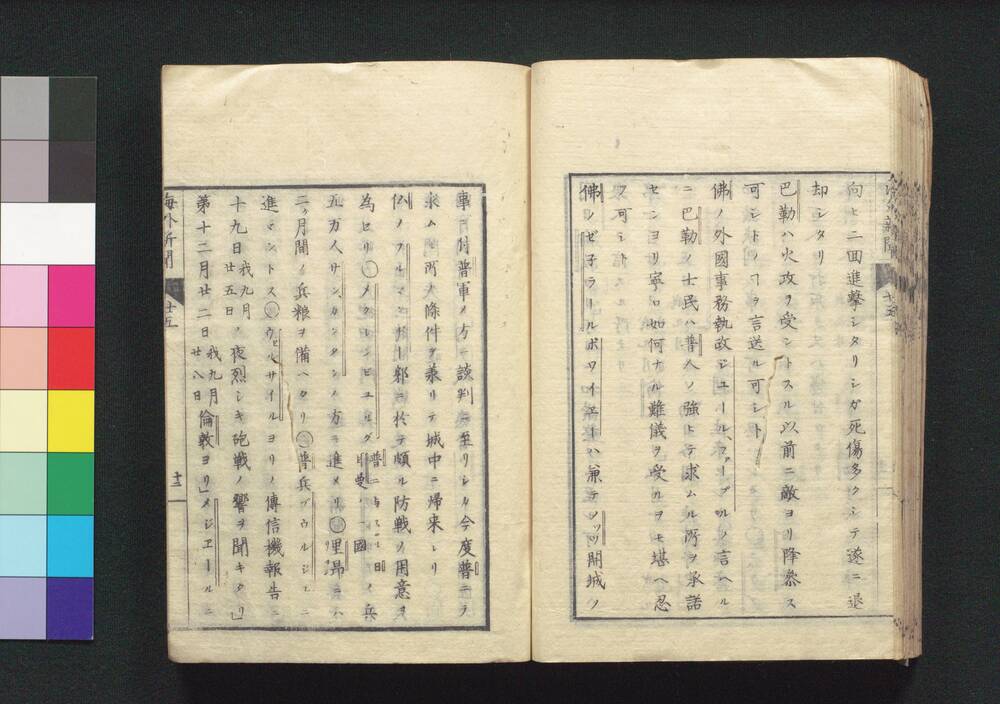 向ヒ二回進撃シタリシガ死傷多クシテ遂ニ退
却シタリ
巴勒ハ火攻ヲ受ントスル以前ニ敵ヨリ降参ス
可シトノヿヲ言送ル可シト
佛ノ外國事務執政ジユールファーブルノ言ヘル
ニ巴勒ノ士民ハ普人ノ強ヒテ求ムル所ヲ承諾
センヨリ寧ロ如何ナル難儀ヲ受ルヲモ堪ヘ忍
フ可シト
佛ノゼ子ラールボワイエーハ兼テメッツ開城ノ
事ニ付普軍ノ方ヘ談判ニ至リシカ今度普ニテ
求ム所ノ條件ヲ乗リテ城中ニ帰来レリ
佛ノフルマンヂー郡ニ於テ頗ル防戦ノ用意ヲ
為セリ○メクレンビユルグ
五万人サンカンタンノ方ヲ進メリ○里昂ニハ
二ヶ月間ノ兵粮ヲ備ヘタリ○普兵ブウルジニ
進マントス○ウェルサイルヨリノ傳信機報告ニ
十九日我九月廿五日ノ夜烈シキ砲戦ノ響ヲ聞キタリ」
第十二月廿二日我九月廿八日倫敦ヨリ」メジエールニ
海外新聞
廿五
十三